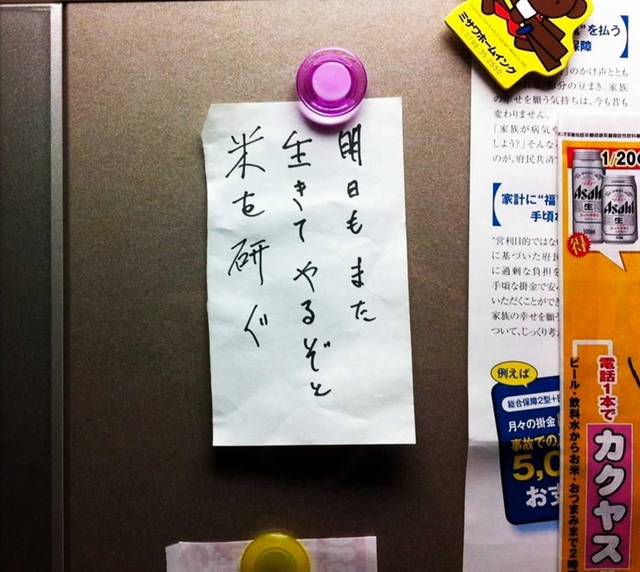 明日もまた
生きてやるぞと
米を研ぐ
ミサワホームイング
を払う
保障
のかけ声ととも
分の豆まき。家族
の幸せを願う気持ちは、今も昔も
変わりません。
「家族が病気や
しよう？」そんな
のが、府民共済
家計に“福
手頃な
“営利目的ではない
に基づいた府民
に過剰な負担を
手頃な掛金で安心
いただくことができ
家族の幸せを願う
ついて、じっくり考え
例えば
総合保障2型+
月々の掛金
事故での
5,0
お支
1/200
Asahi
生
Asahi
生
500ml
電話1本で
カクヤス
ビール・飲料水からお米・おつまみまで2時